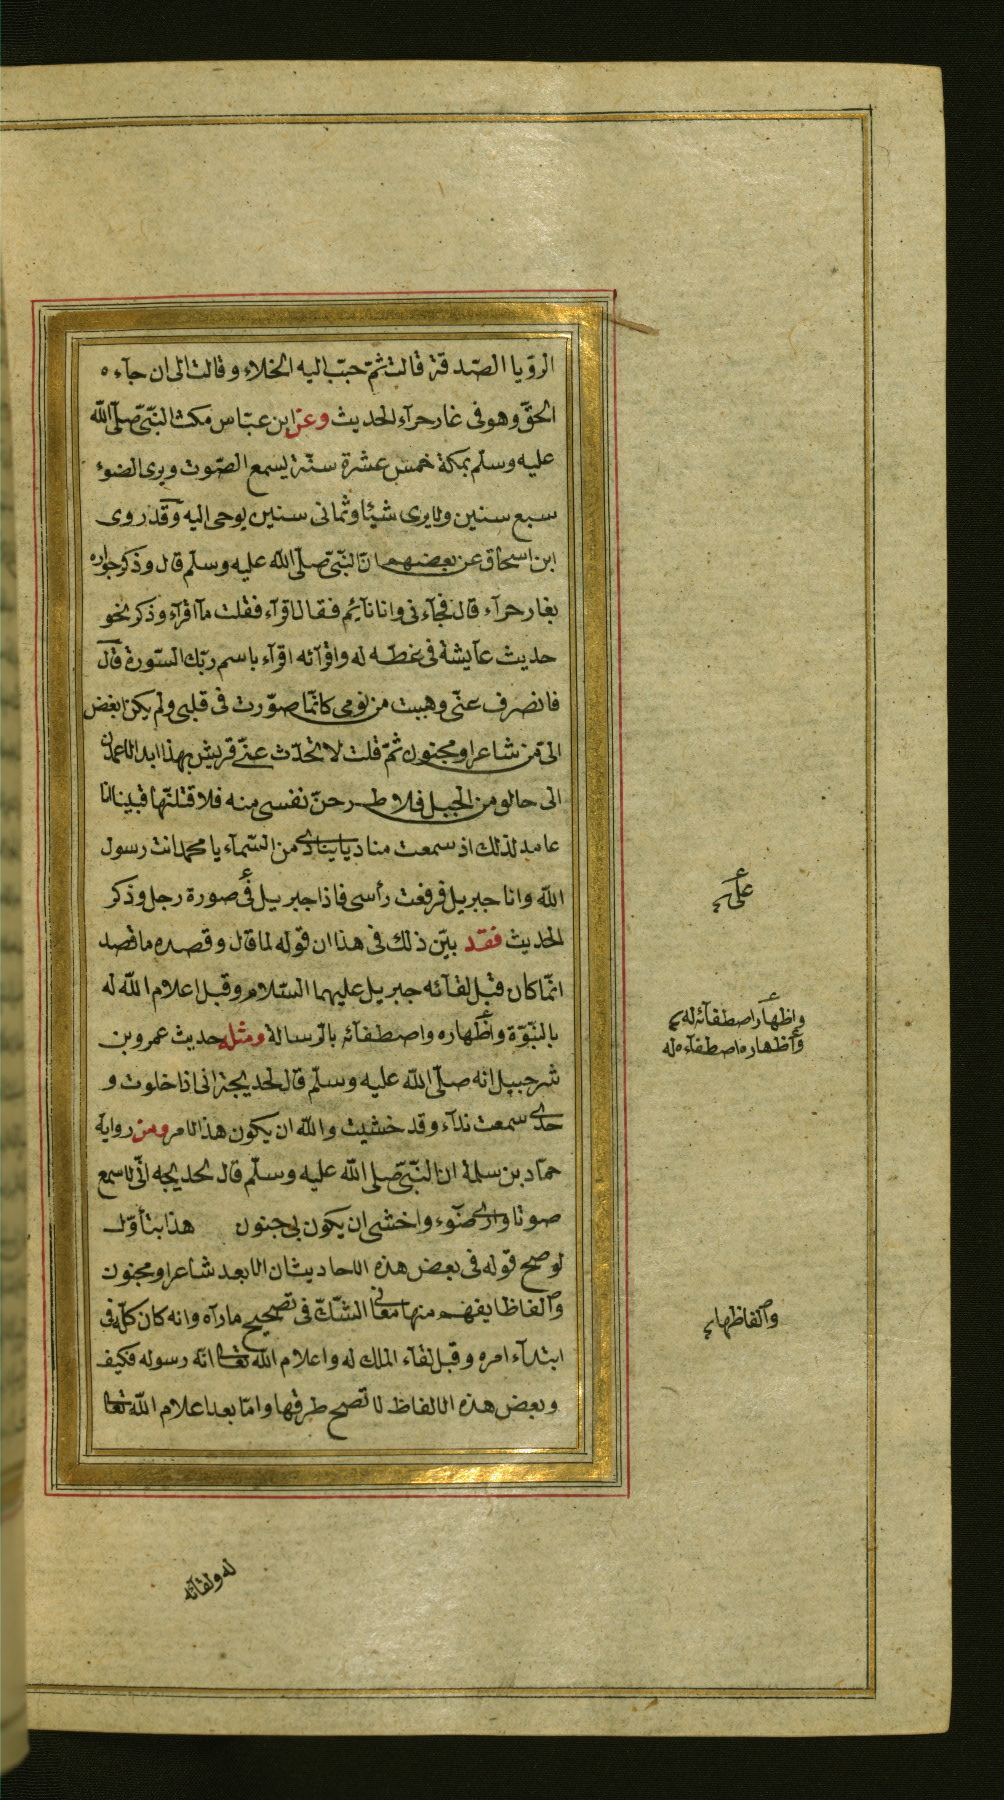 الرؤيا الصّدقة قالت ثمّ حبّب اليه الخلاء وقالت الى ان جآءه
الحقّ وهو فى غار حرآء الحديث وعن ابن عبّاس مكث النّبىّ صلّى الله
عليه وسلّم بمكة خمس عشرة سنة يسمع الصّوت ويرى الضوء
سبع سنين ولا يرى شيئا وثمانى سنين يوحى اليه وقد روى
ابن اسحاق عن بعضهم انّ النّبىّ صلّى الله عليه وسلّم قال وذكر جواره
بغار حرآء قال فجآءنى وانا نآئم فقال اقرآء فقلت مآ اقرآء وذكر نحو
حديث عآيشة فى غطّه له واقرآئه اقرآء باسم ربّك السّورة قال
فانصرف عنّى وهببت من نومى كانّما صوّرت فى قلبى ولم يكن ابغض
الىّ من شاعر او مجنون ثمّ قلت لا تحدّث عنّى قريش بهذا ابدا لاعمدنّ
الى حالق من الجبل فلاطرحنّ نفسى منه فلاقتلنّها فبينا انا
عامد لذلك اذ سمعت مناديا ينادى من السّمآء يا محمد انت رسول
الله وانا جبريل فرفعت رأسى فاذا جبريل فى صورة رجل وذكر
الحديث فقد بيّن ذلك فى هذا ان قوله لما قال وقصده ما قصد
انّما كان قبل لقآئه جبريل عليهما السّلام وقبل اعلام الله له
بالنّبوّة واظهاره واصطفآئه بالرّسالة ومثله حديث عمرو بن
شرحبيل انه صلّى الله عليه وسلّم قال لخديجة انى اذا خلوت و
حدى سمعت ندآء وقد خشيت والله ان يكون هذا لامر ومن رواية
حمّاد بن سلمة ان النّبىّ صلى الله عليه وسلّم قال لخديجه انّى لاسمع
صوتا وارى ضوء واخشى ان يكون بى جنون هذا يتأوّل
لو صح قوله فى بعض هذه الاحاديث ان الابعد شاعر او مجنون
والفاظا يفهم منها معانى الشّكّ فى تصحيح مارآه وانه كان كلّه فى
ابتدآء امره وقبل لقآء الملك له واعلام الله تعالى انّه رسوله فكيف
وبعض هذه الالفاظ لا تصح طرقها وامّا بعد اعلام الله تعالى
على
واظهار اصطفآئه له
واظهاره اصطفآءه له
والفاظها
له ولقآئه